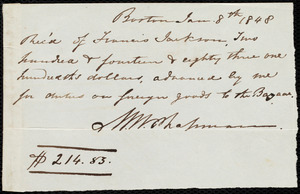 Boston Jan 8th 1848
Rec'd of Francis Jackson, Two
hundred & fourteen & eighty three one
hundredths dollars, advanced by me
for duties on foreign goods to the Bazaar.
M. W. Chapman.
$ 214.83.